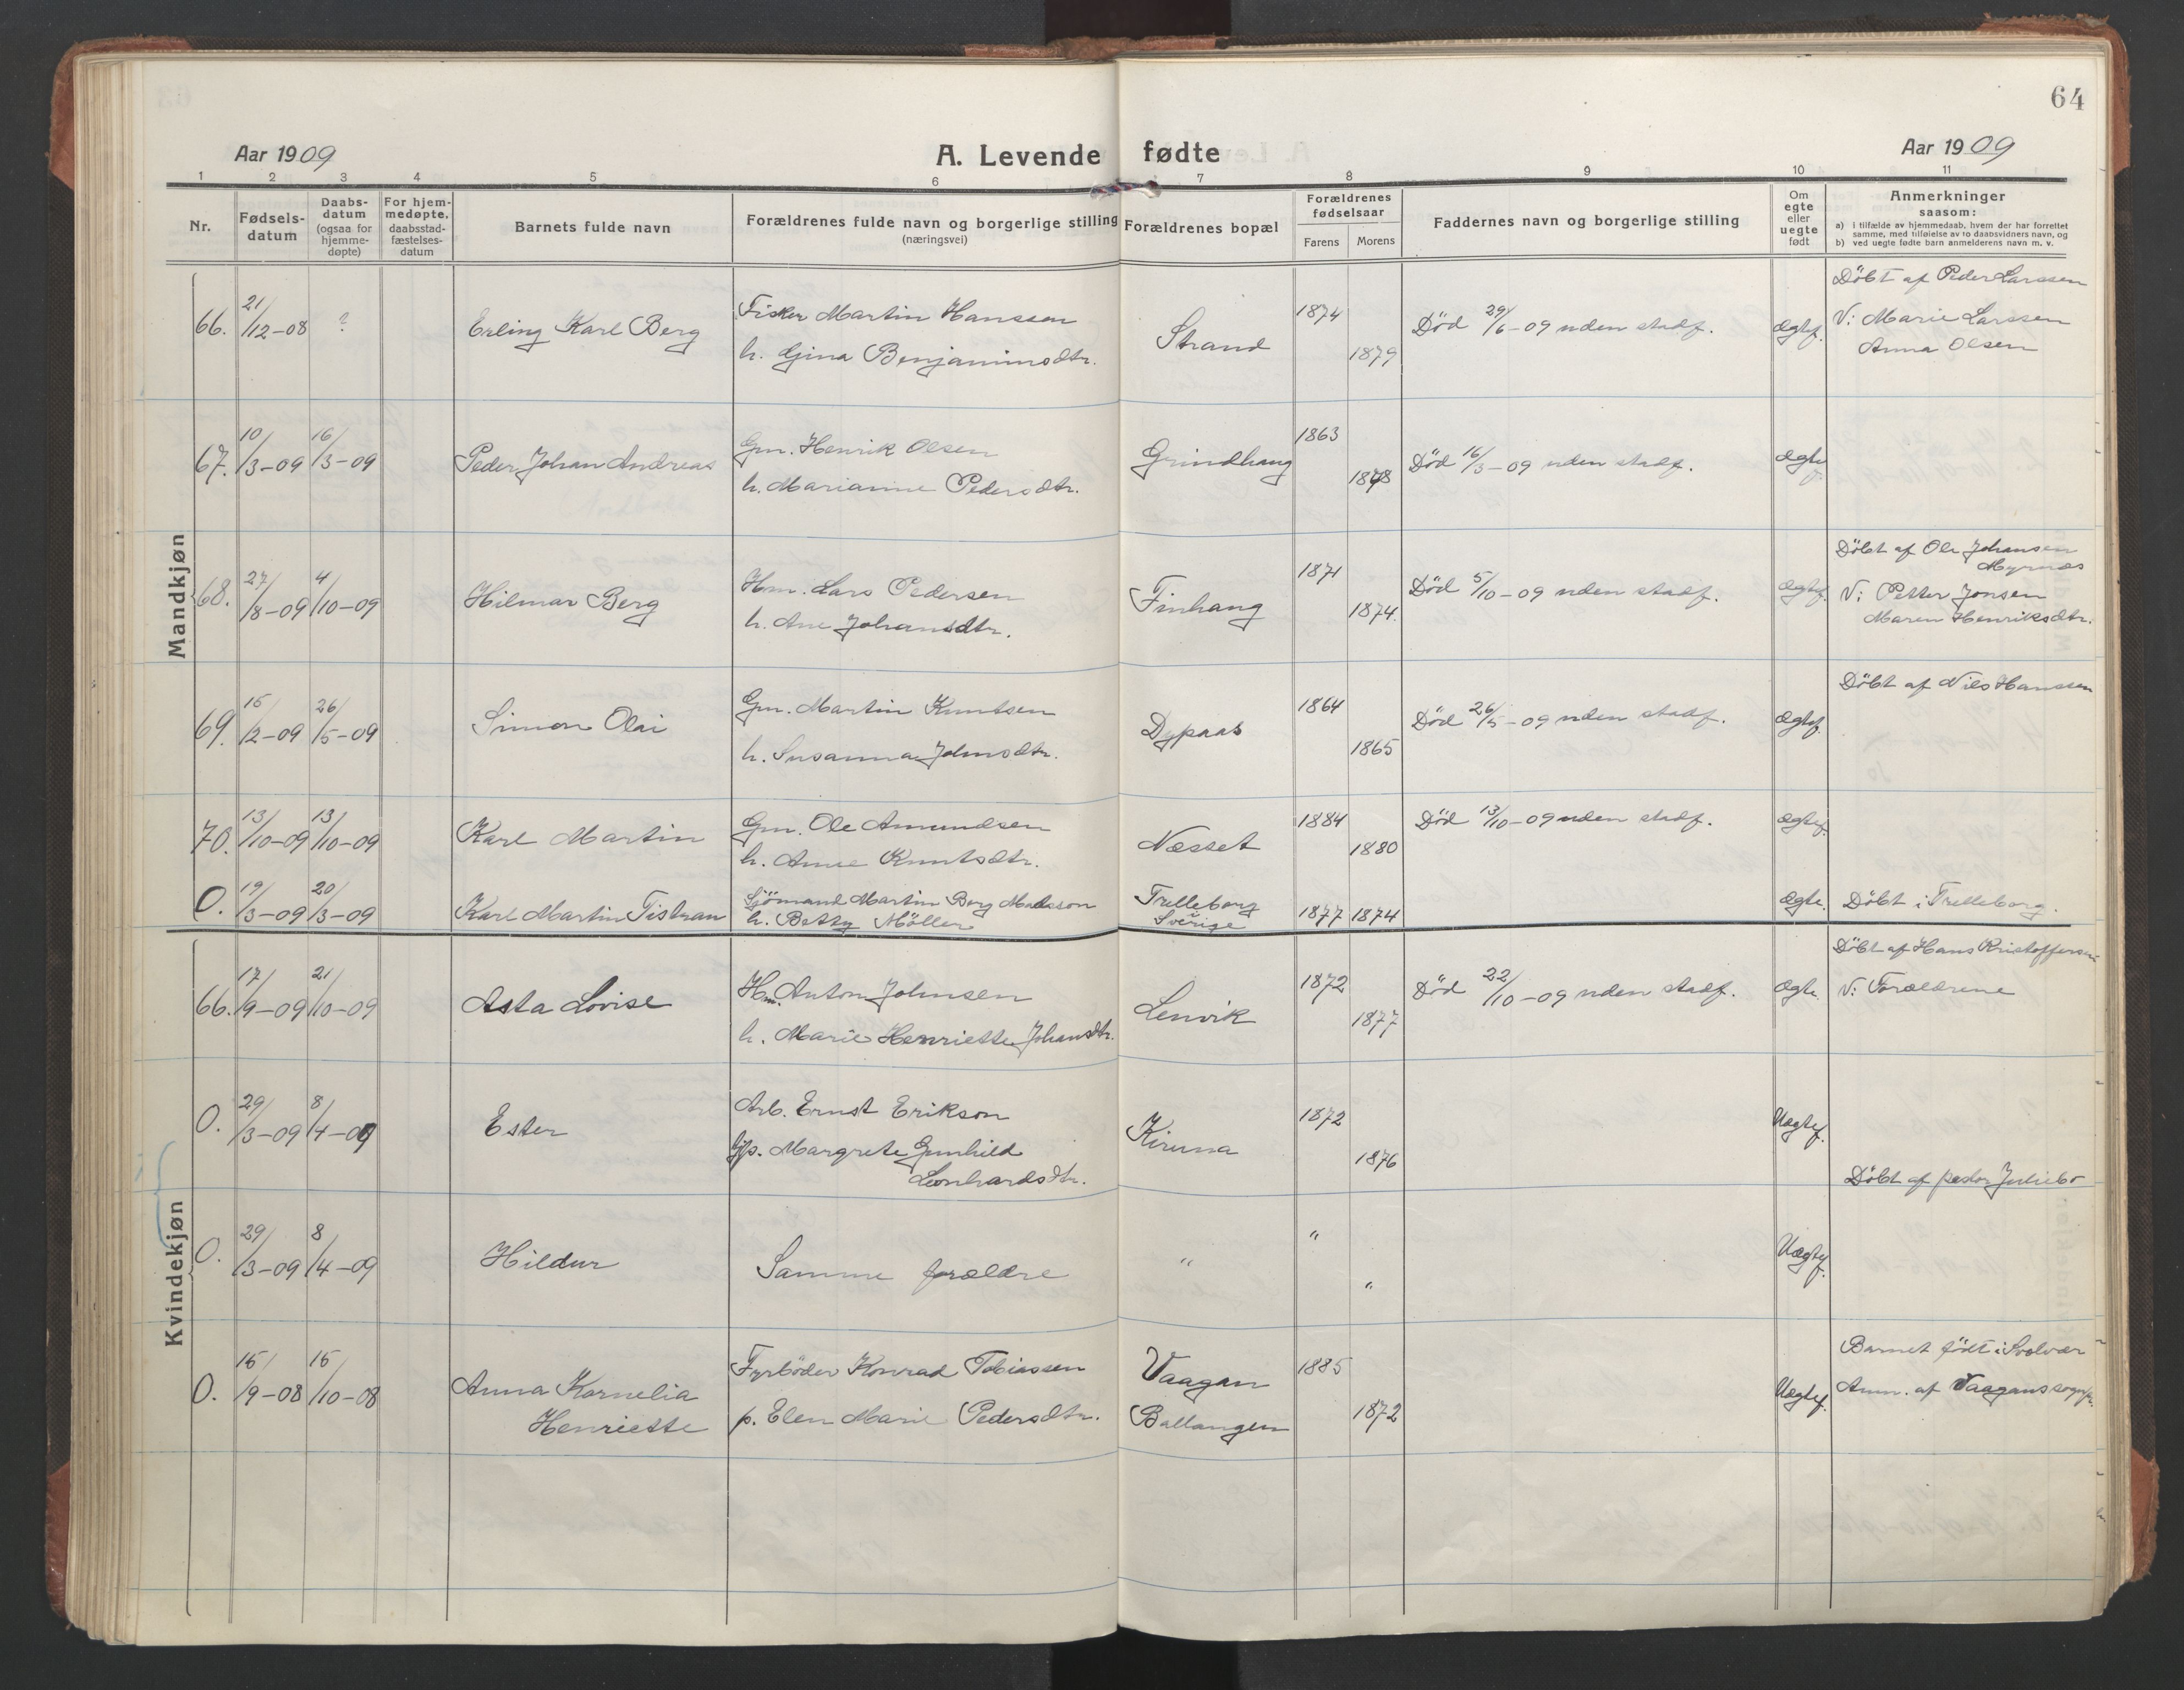 64
Aar 1909
A. Levende fødte
Aar 1909
1 2 3 4 5 6 7 8 9 10 11
Nr.
Fødsels-
datum
Daabs-
datum
(ogsaa for
hjemme-
døpte)
For hjem-
medøpte,
daabsstad-
fæstelses-
datum
Barnets fulde navn
Forældrenes fulde navn og borgerlige stilling
(næringsvei)
Forældrenes bopæl
Forældrenes
fødselsaar
Farens Morens
Faddernes navn og borgerlige stilling
Om
egte
eller
uegte
født
Anmerkninger
saasom:
a) i tilfælde av hjemmedaab, hvem der har forrettet
samme, med tilføielse av to daabsvidners navn, og
b) ved uegte fødte barn anmelderens navn m. v.
Mandkjøn
66. 21/12-08 ? Erling Karl Berg
Fisker Martin Hanssen
h. Gina Benjaminsdtr.
Strand 1874 1879
Död 29/6-09 uden stadf. Ægtef.
Döbt af Peder Larssen
V: Marie Larssen
Anna Olsen
67. 10/3-09 16/3-09 Peder Johan Andreas
Gm. Henrik Olsen
h. Marianne Pedersdtr.
Grindhaug 1863 1878
Död 16/3-09 uden stadf. Ægtef.
68. 27/8-09 4/10-09 Hilmar Berg
Hm. Lars Pedersen
h. Ane Johansdtr.
Finhaug 1871 1874.
Död 5/10-09 uden stadf. Ægtef.
Döbt af Ole Johansen
Myrnæs
V: Petter Jonsen
Maren Henriksdtr.
69. 15/2-09 26/5-09 Simon Olai
Gm. Martin Knutsen
h. Susanna Johnsdtr.
Dypaas 1864 1865
Död 26/5-09 uden stadf. Ægtef.
Döbt af Nils Hanssen
70. 13/10-09 13/10-09 Karl Martin
Gm. Ole Amundsen
h. Anne Knutsdtr.
Næsset 1884 1880
Död 13/10-09 uden stadf. Ægtef.
0. 19/3-09 20/3-09 Karl Martin Tistran
Sjömand Martin Berg Madsson
h. Betty Möller
Trelleborg
Sverige
1877 1874 Ægte. Döbt i Trelleborg.
Kvindekjøn
66. 17/9-09 21/10-09 Asta Lovise
Hm. Anton Johnsen
h. Marie Henriette Johansdtr.
Lenvik 1872 1877
Död 22/10-09 uden stadf. Ægte.
Döbt af Hans Kristoffersen
V: Forældrene
0. 29/3-09 8/4-09 Ester
Arb. Ernst Erikson
Gp. Margrete Gunhild
Leonhardsdtr.
Kiruna 1872 1876 Uægtef.
Döbt af pastor Juliebø
0. 29/3-09 8/4-09 Hildur Samme forældre " " " Uægtef.
0. 15/9-08 15/10-08 Anna Kornelia
Henriette
Fyrböder Konrad Tobiassen
p. Elen Marie Pedersdtr.
Vaagan
Ballangen
1885 1872 Uægtef.
Barnet född i Svolvær
Anm. af Vaagans sognepr.